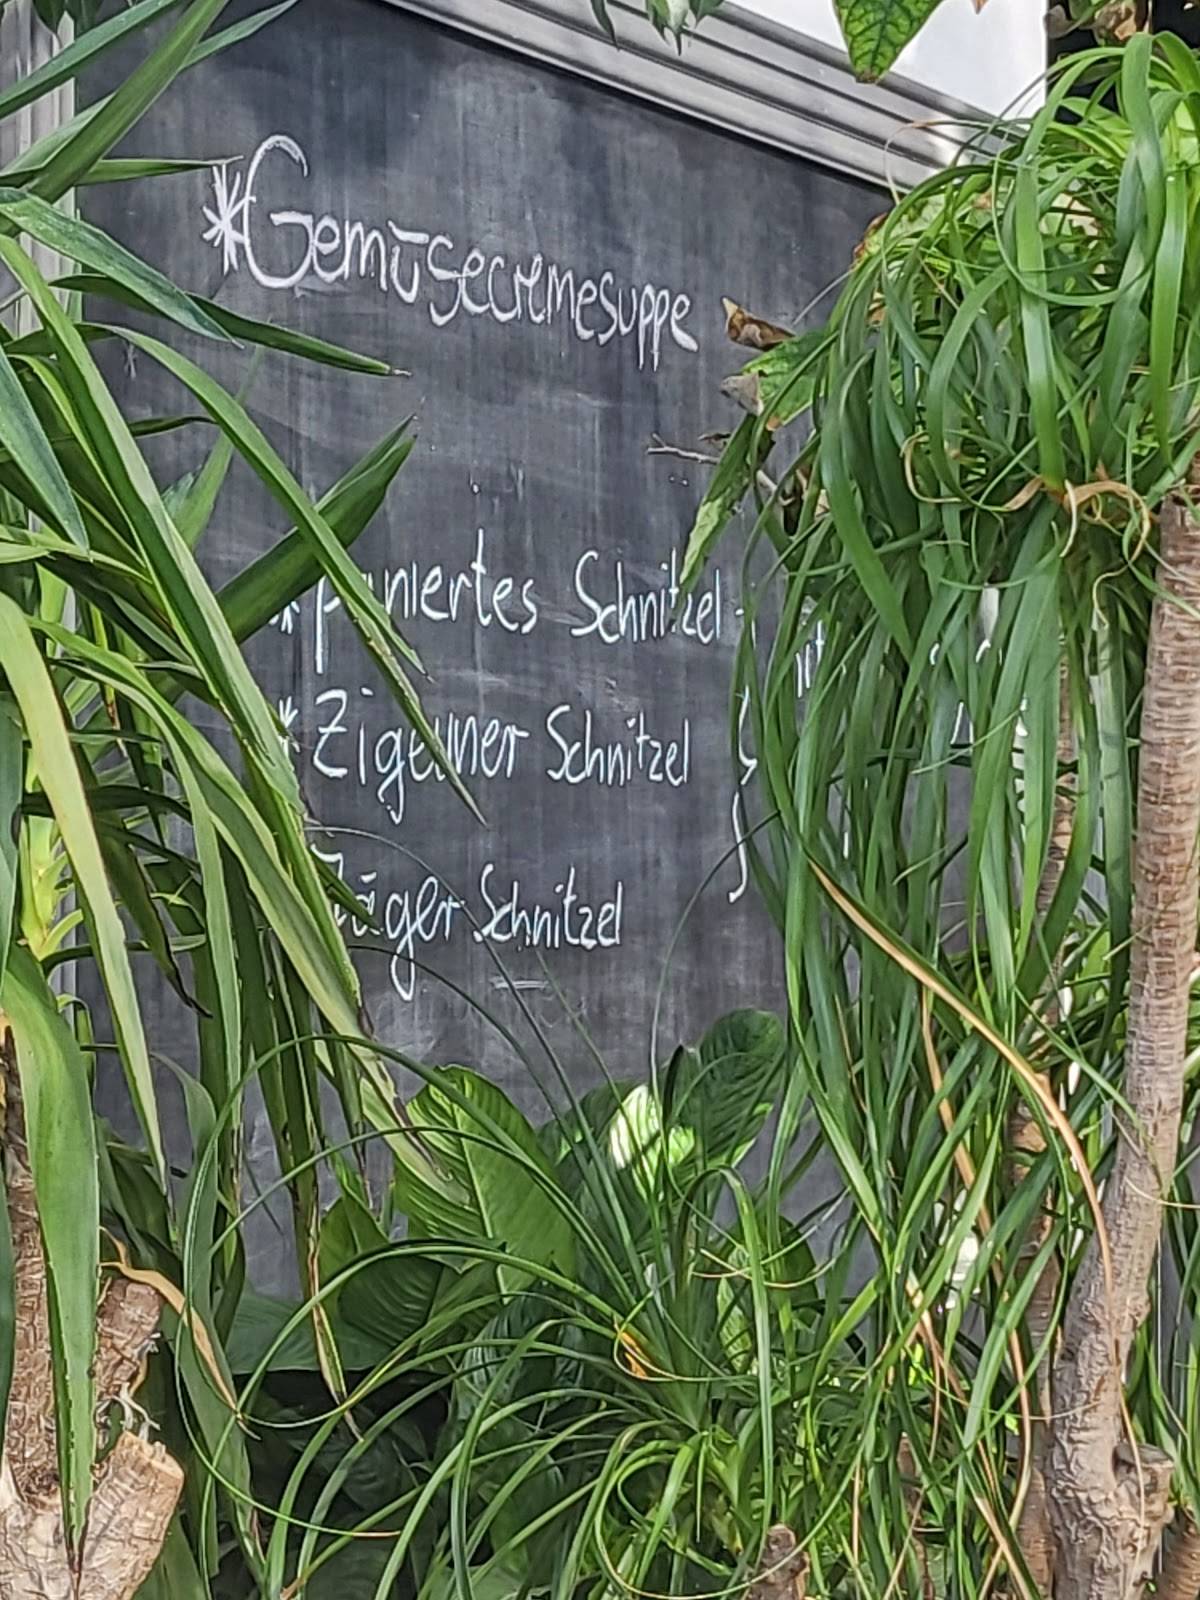 *Gemüsecremesuppe
* paniertes Schnitzel
* Zigeuner Schnitzel
Jäger Schnitzel